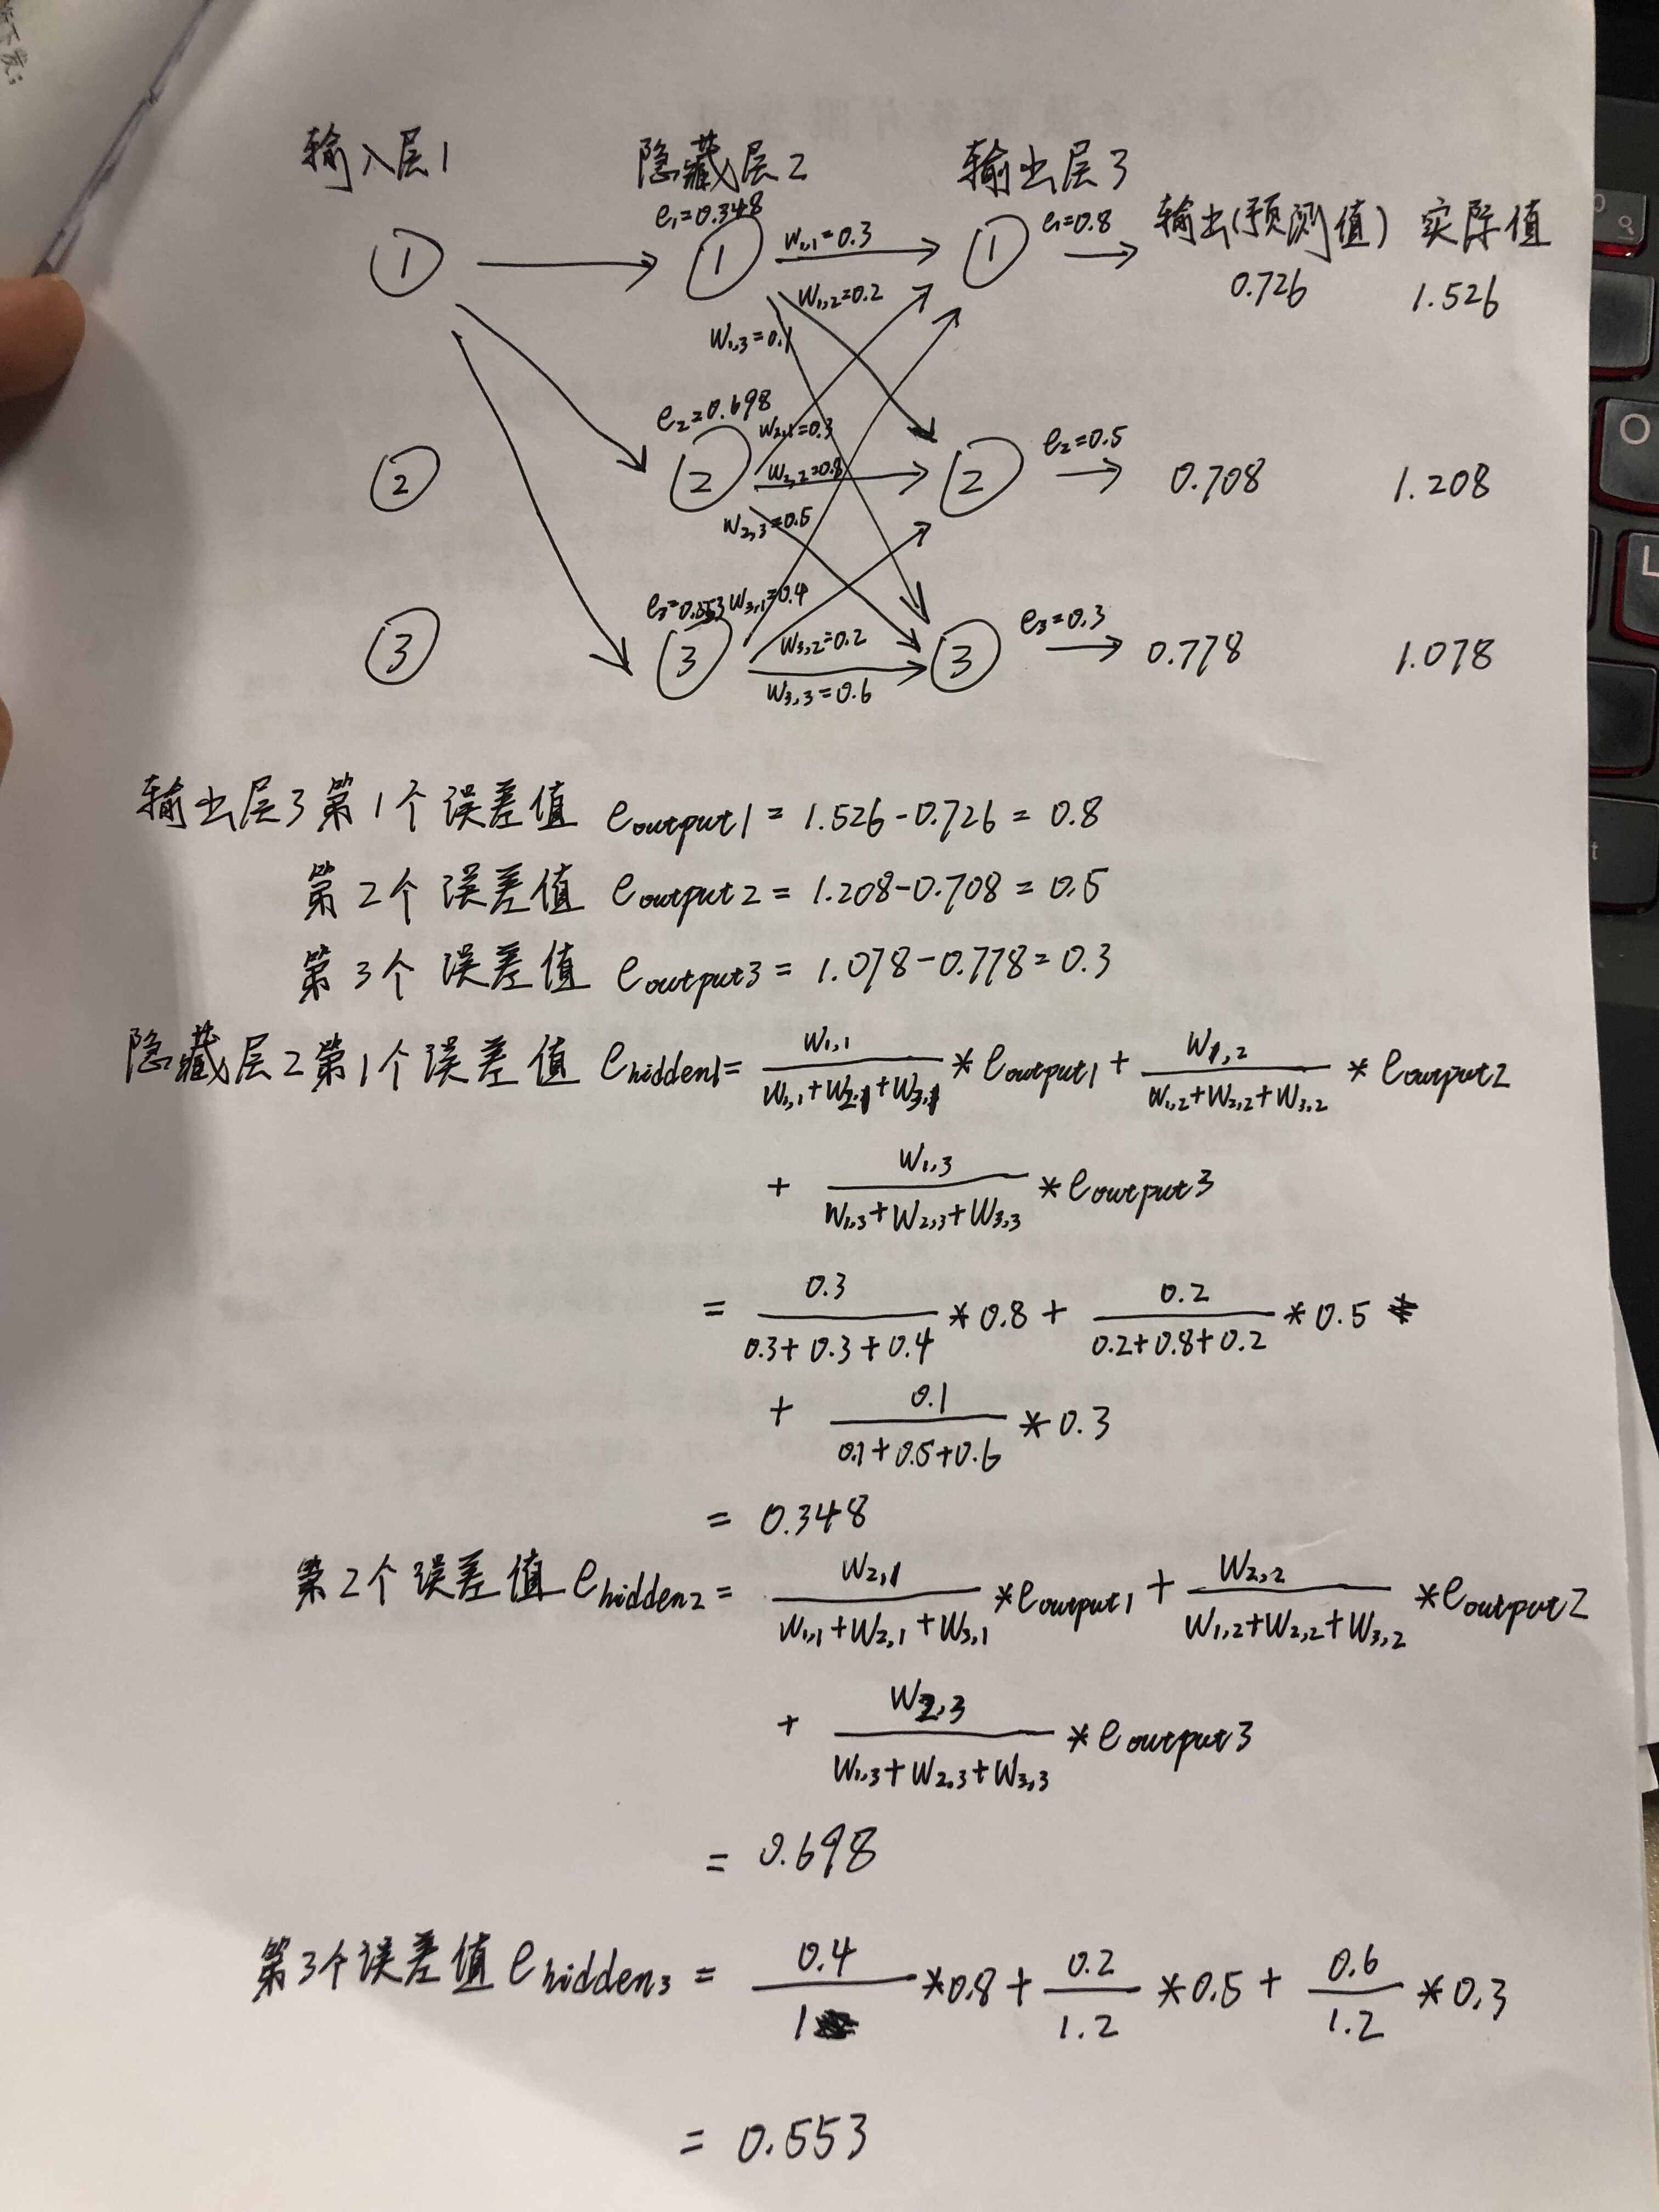 输入层1 隐藏层2 输出层3
输出(预测值) 实际值
e₁=0.348 e₁=0.8
① ① w₁,₁=0.3 ① 0.726 1.526
w₁,₂=0.2
w₁,₃=0.1
e₂=0.698 w₂,₁=0.3 e₂=0.5
② ② w₂,₂=0.8 ② 0.708 1.208
w₂,₃=0.5
w₃,₁=0.4
③ ③ w₃,₂=0.2 ③ e₃=0.3 0.778 1.078
w₃,₃=0.6
输出层3第1个误差值 eoutput1 = 1.526-0.726 = 0.8
第2个误差值 eoutput2 = 1.208-0.708 = 0.5
第3个误差值 eoutput3 = 1.078-0.778 = 0.3
隐藏层2第1个误差值 ehidden1 = w₁,₁/(w₁,₁+w₂,₁+w₃,₁) * eoutput1 + w₁,₂/(w₁,₂+w₂,₂+w₃,₂) * eoutput2
+ w₁,₃/(w₁,₃+w₂,₃+w₃,₃) * eoutput3
= 0.3/(0.3+0.3+0.4) * 0.8 + 0.2/(0.2+0.8+0.2) * 0.5
+ 0.1/(0.1+0.5+0.6) * 0.3
= 0.348
第2个误差值 ehidden2 = w₂,₁/(w₁,₁+w₂,₁+w₃,₁) * eoutput1 + w₂,₂/(w₁,₂+w₂,₂+w₃,₂) * eoutput2
+ w₂,₃/(w₁,₃+w₂,₃+w₃,₃) * eoutput3
= 0.698
第3个误差值 ehidden3 = 0.4/1 * 0.8 + 0.2/1.2 * 0.5 + 0.6/1.2 * 0.3
= 0.553